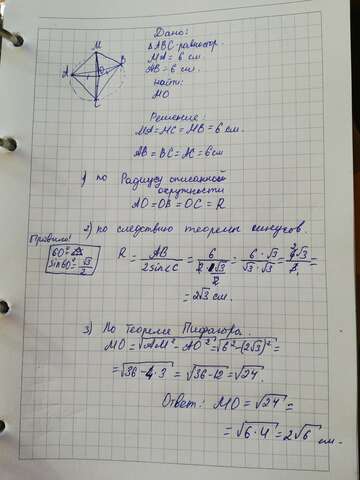 Дано:
△ABC-равностор.
MA = 6 см.
AB = 6 см.
Найти:
MO
M
A
B
O
C
Решение:
MA = MC = MB = 6 см.
AB = BC = AC = 6 см
1) по Радиусу описанной
окружности
AO = OB = OC = R
2) по следствию теоремы синусов.
Правило!
sin60° = √3/2
R = AB/(2sin∠C) = 6/(2·√3/2) = (6·√3)/(√3·√3) = 6√3/3 =
= 2√3 см.
3) По теореме Пифагора.
MO = √(AM² - AO²) = √(6² - (2√3)²) =
= √(36 - 4·3) = √(36 - 12) = √24.
Ответ: MO = √24 =
= √(6·4) = 2√6 см.